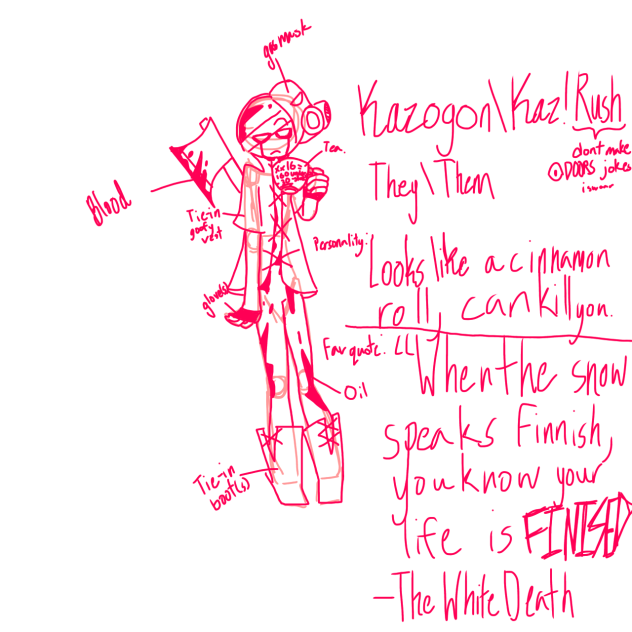 gas mask
Kazogon\Kaz!Rush
Tea.
dont make
DOORS jokes
i swear
They\Them
Blood
Tie-in
goofy
vest
Personality:
Looks like a cinnamon
roll, can kill you.
glove(s)
Fav quote:
When the snow
speaks Finnish,
you know your
life is FINISED
-The White Death
Oil
Tie-in
boot(s)